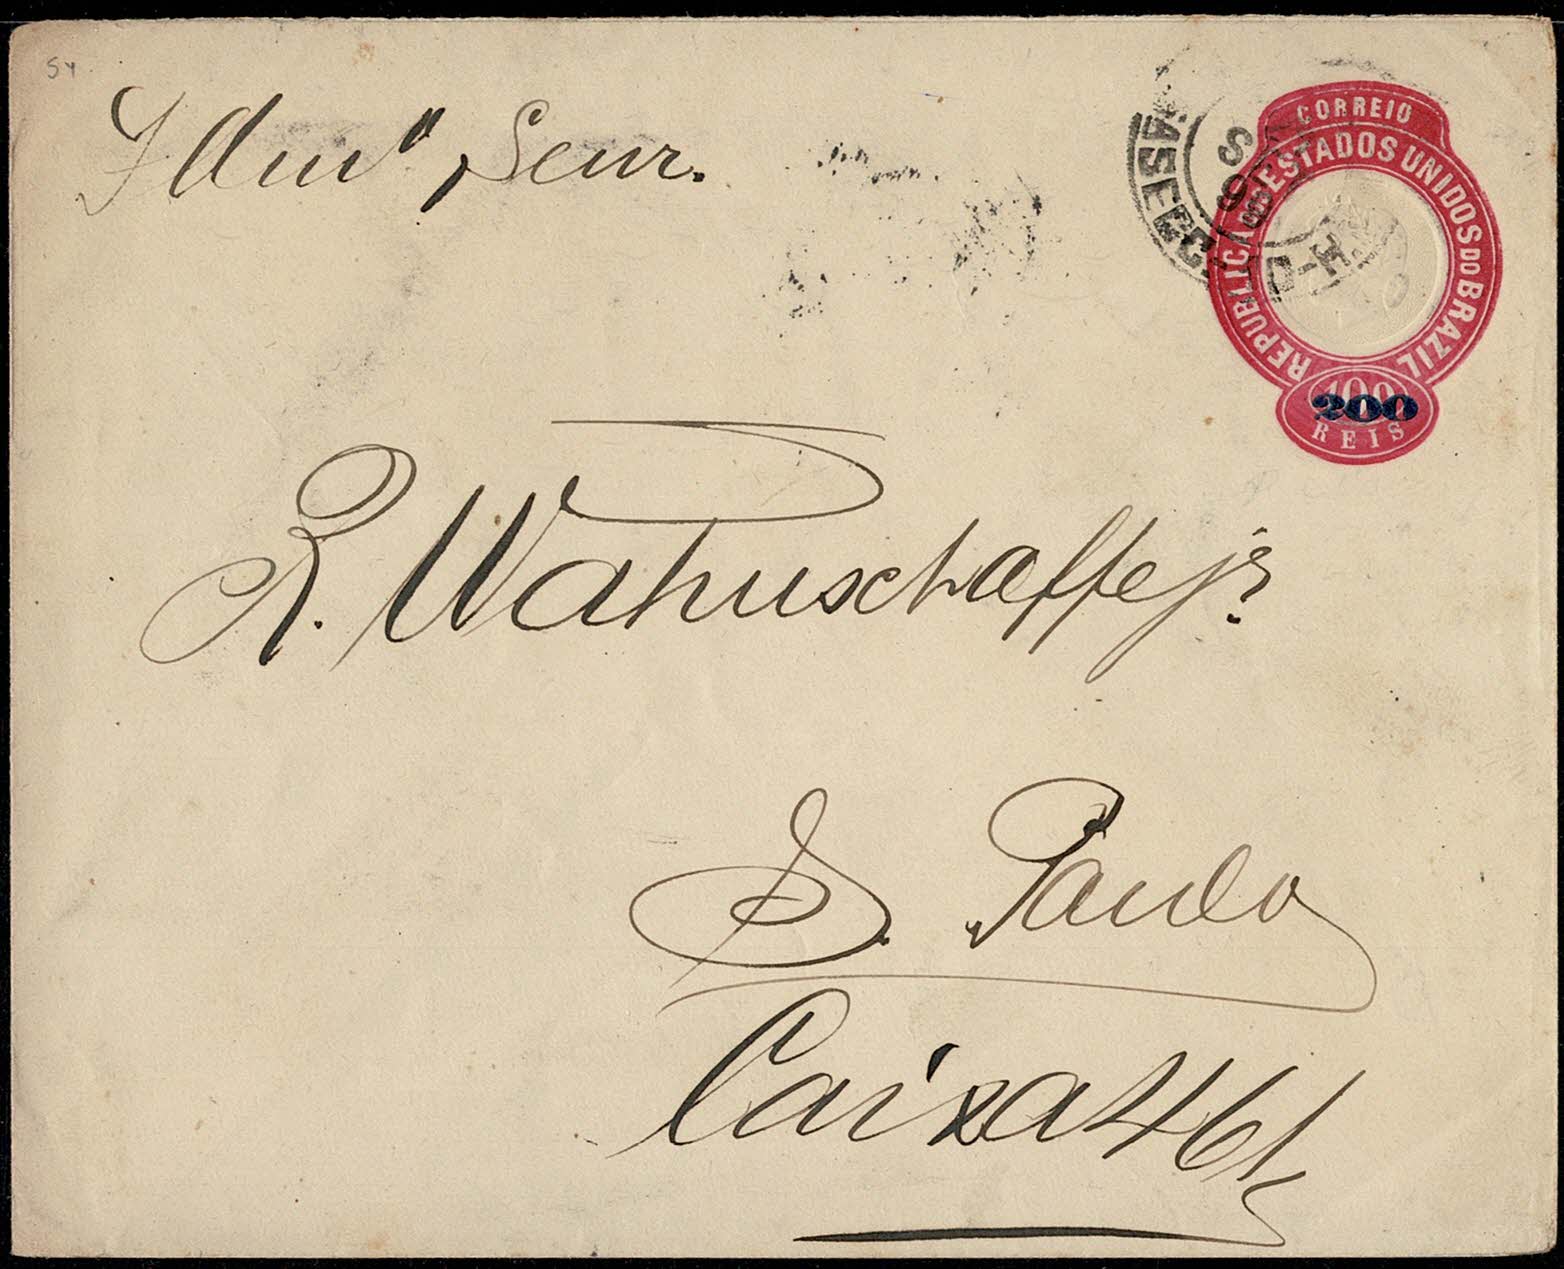 54
CORREIO
REPUBLICA DOS ESTADOS UNIDOS DO BRAZIL
200
100
REIS
Senr.
R. Wahnschaffe jr.
S. Paulo
Caixa 461